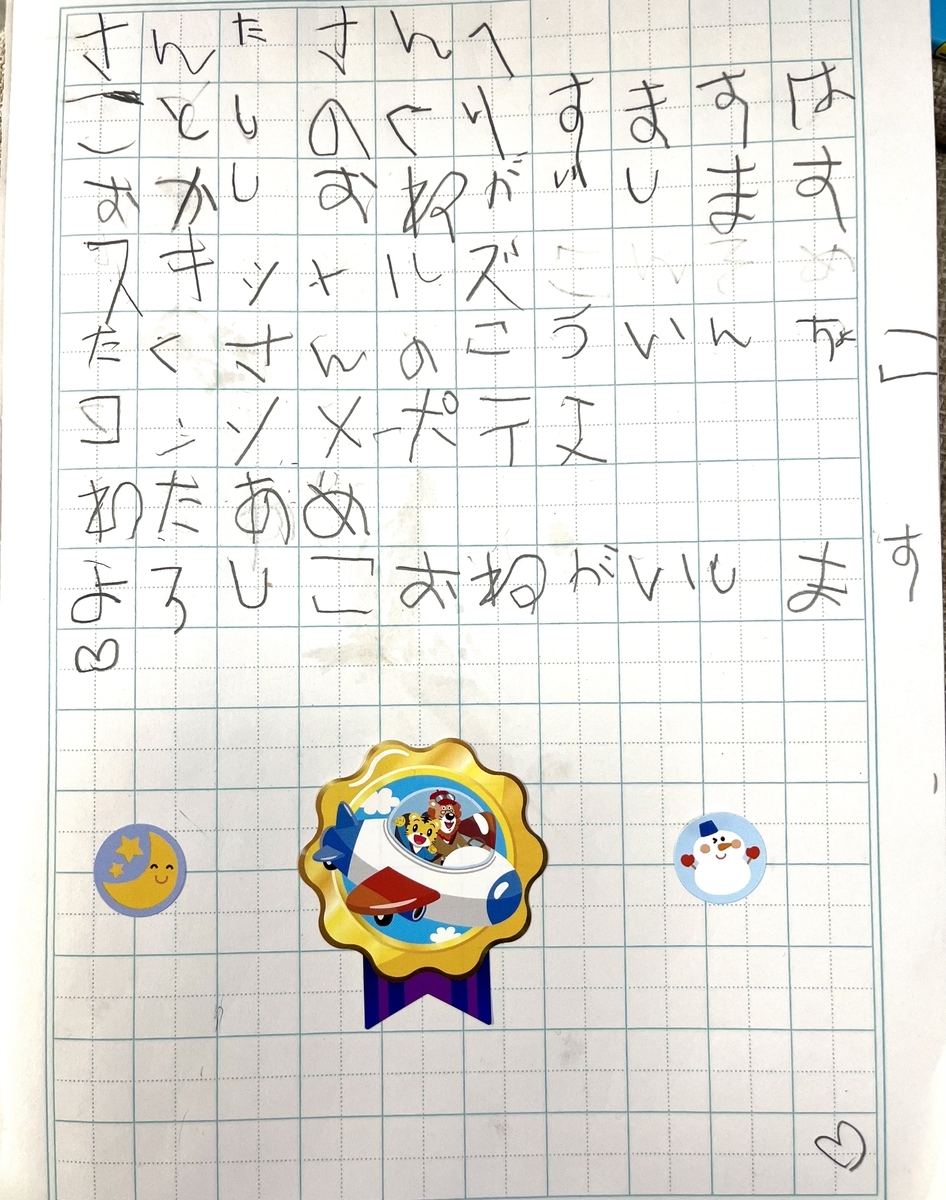 さんたさんへ
ことしのくりすますは
おかしおねがいします
スキットルズ
たくさんのこういんちょこ
コンソメポテエ
わたあめ
よろしこおねがいします